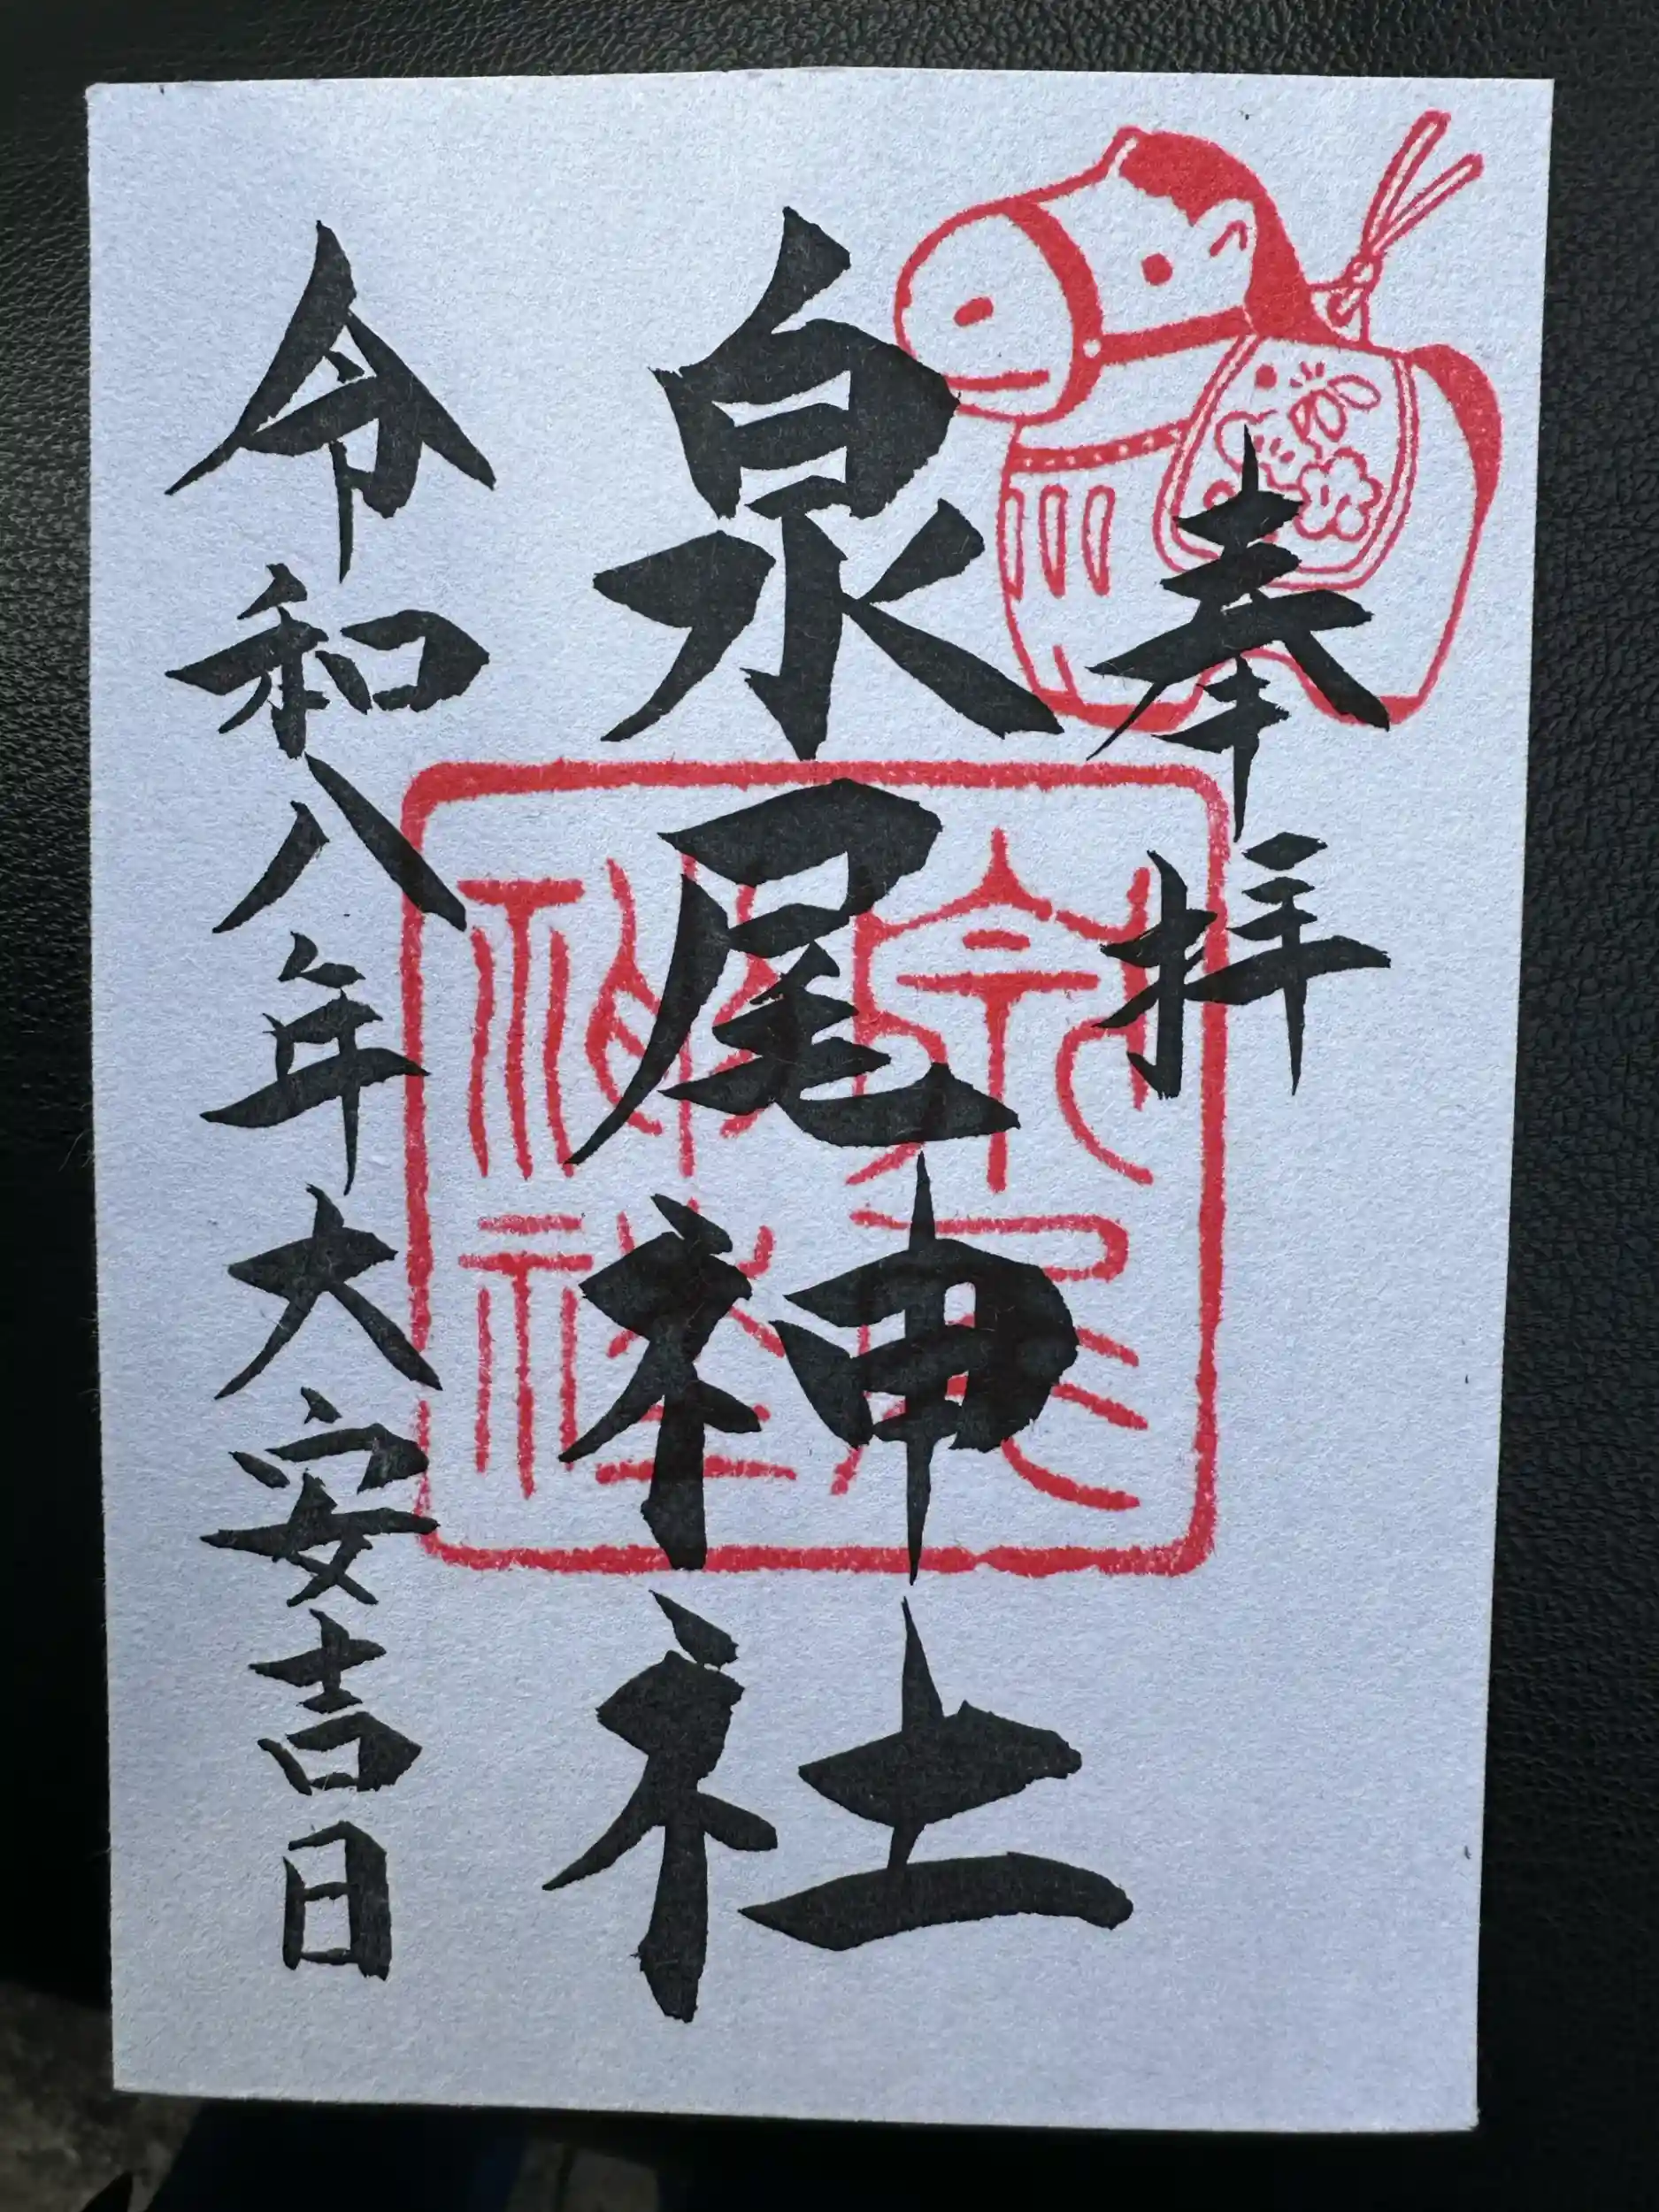 奉拝
泉尾神社
泉尾神社
令和八年大安吉日